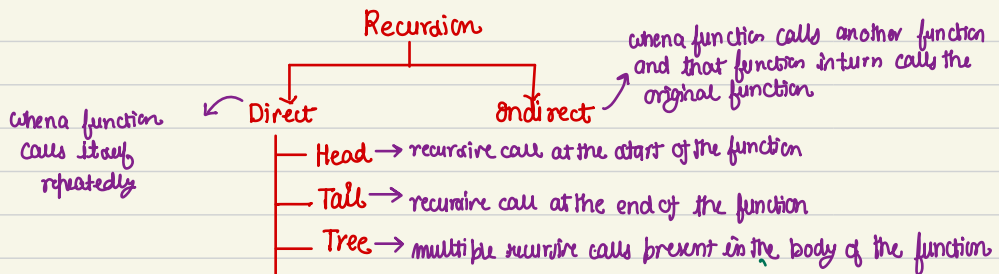 Recursion
when a function calls another function
and that function inturn calls the
original function
Direct
Indirect
when a function
calls itself
repeatedly
Head → recursive call at the start of the function
Tail → recursive call at the end of the function
Tree → multiple recursive calls present in the body of the function